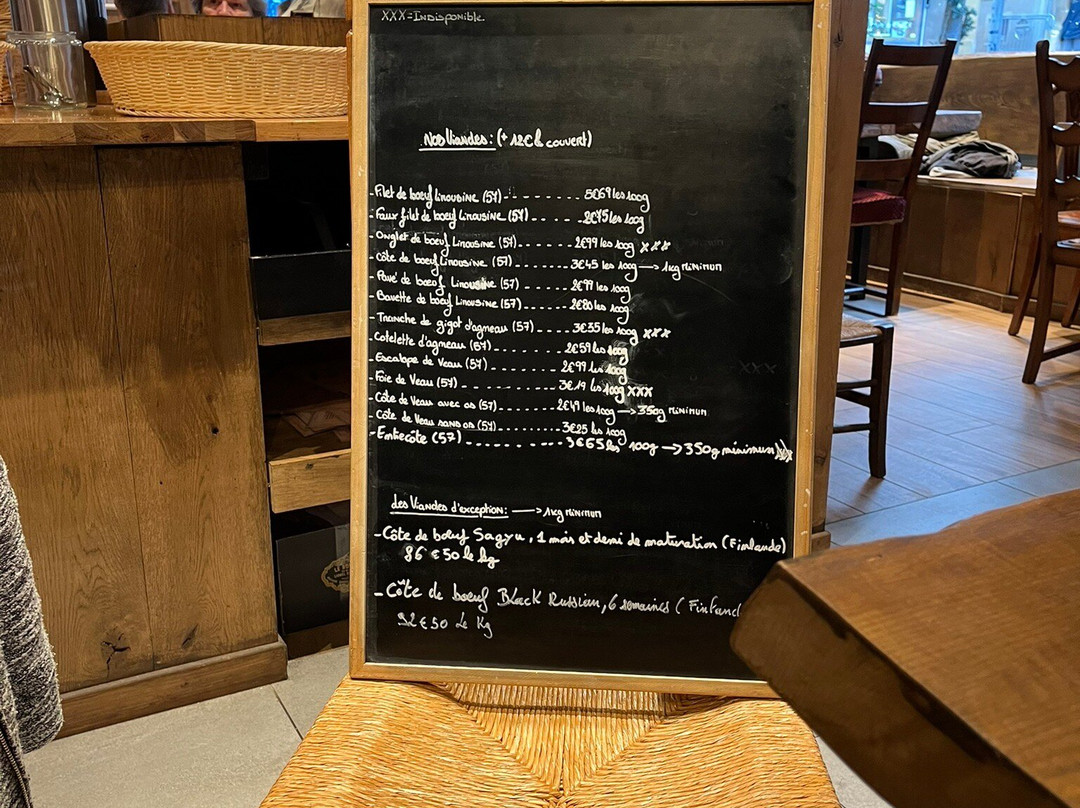 XXX=Indisponible
Nos Viandes: (+ 12€ le couvert)
-Filet de boeuf Limousine (57) ........ 5€69 les 100g
-Faux filet de boeuf Limousine (57) ..... 2€75 les 100g
-Onglet de boeuf Limousine (57)...... 2€99 les 100g xxx
-Côte de boeuf Limousine (57) ...... 3€45 les 100g → 1kg minimum
-Pavé de boeuf Limousine (57) ..... 2€99 les 100g
-Bavette de boeuf Limousine (57) ..... 2€80 les 100g
-Tranche de gigot d'agneau (57)..... 3€35 les 100g xxx
-Cotelette d'agneau (57)......... 2€59 les 100g
-Escalope de Veau (57)......... 2€99 les 100g
-Foie de Veau (57) .......... 3€19 les 100g XXX
-Côte de Veau avec os (57)....... 2€49 les 100g → 350g minimum
-Côte de Veau sans os (57)....... 3€25 les 100g
-Entrecôte (57)........... 3€65 les 100g → 350g minimum xxx
des Viandes d'exception: → 1kg minimum
-Côte de boeuf Sagyu, 1 mois et demi de maturation (Finlande)
86€50 le kg
-Côte de boeuf Black Russian, 6 semaines (Finland
92€50 le Kg